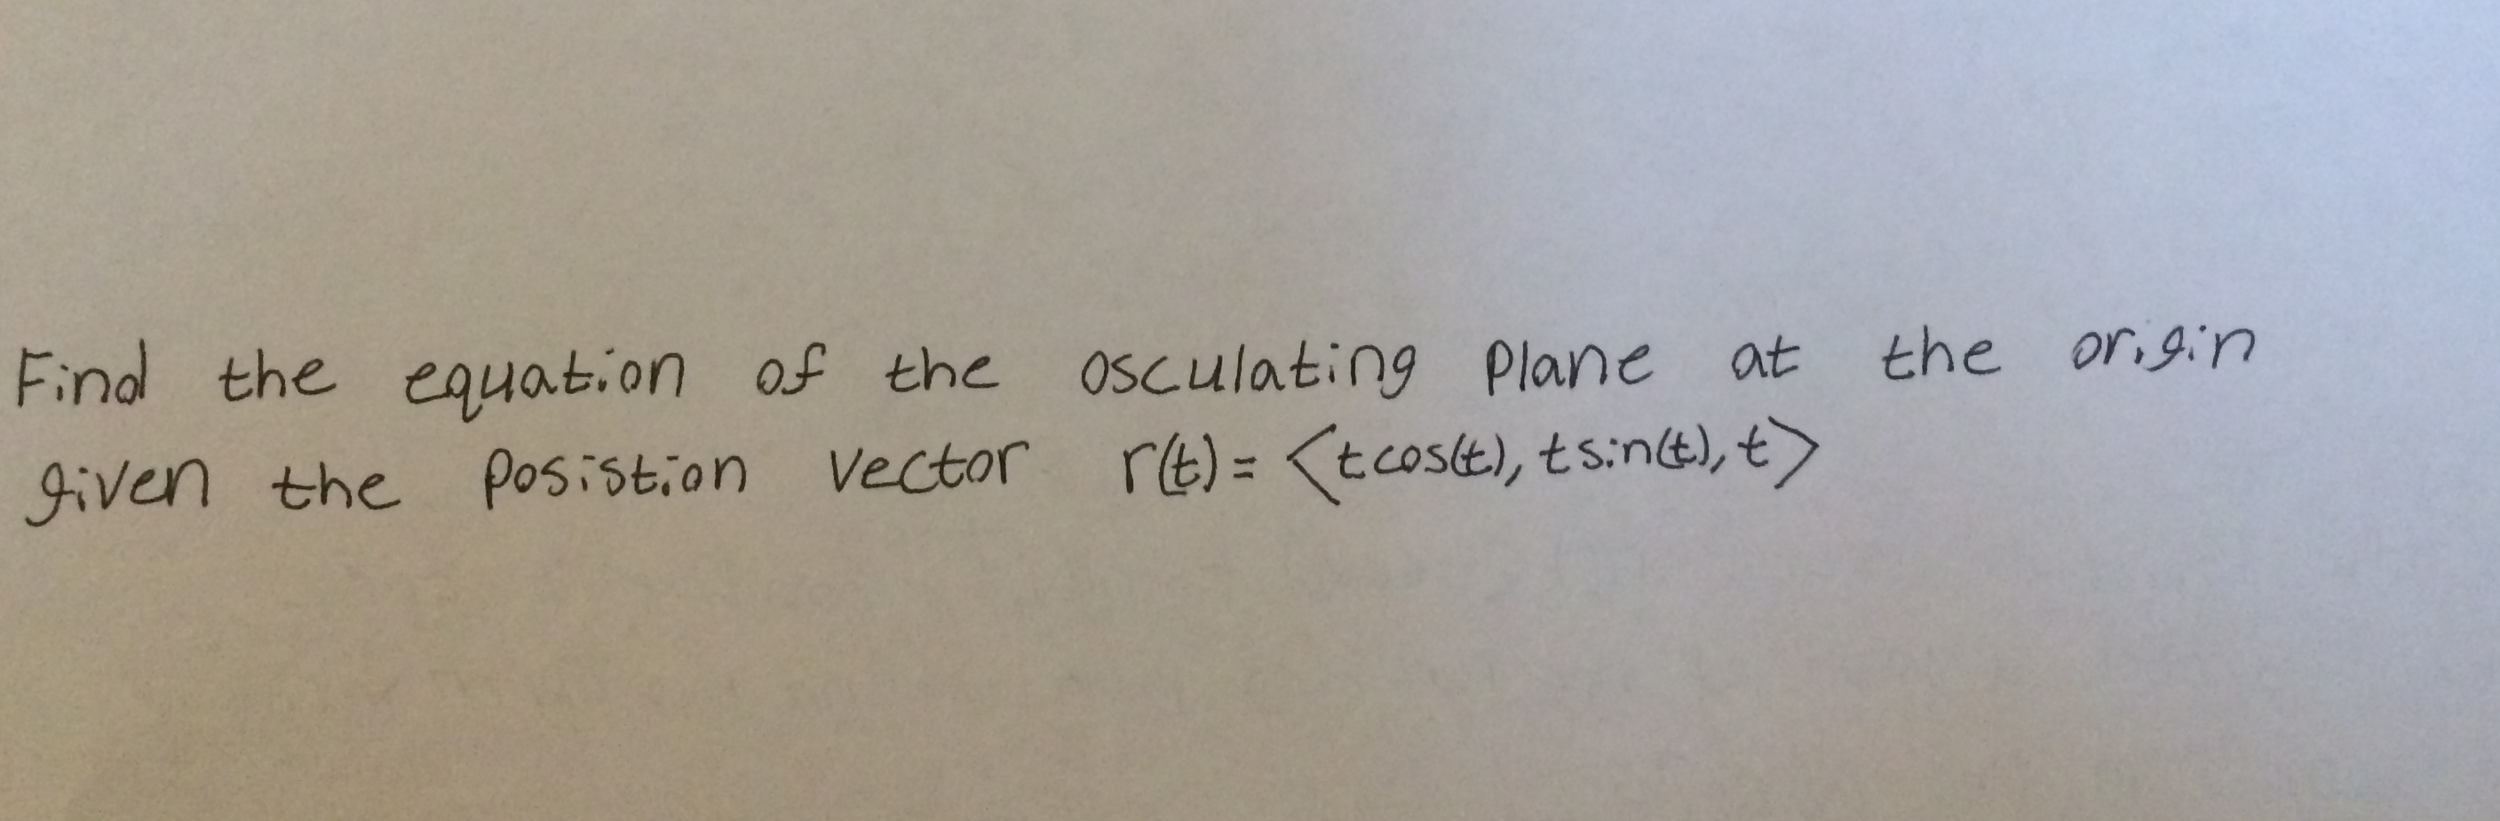 Find the equation of the osculating plane at the origin
given the posistion vector r(t) = <t cos(t), t sin(t), t>